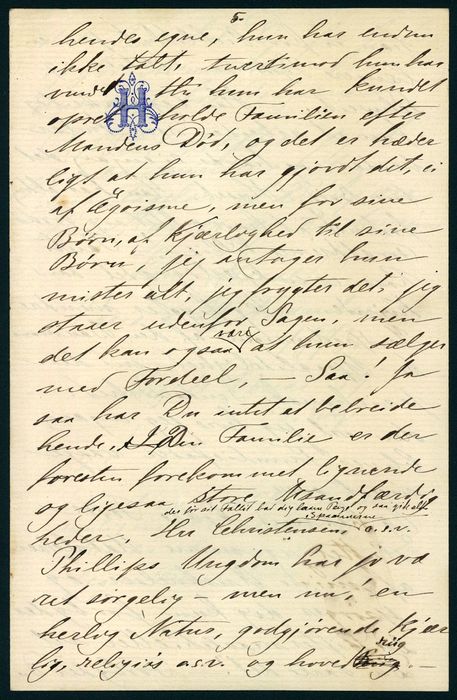 5.
hendes egne, hun har endnu
ikke talt, tværtimod hun har
hun har kundet
holde Familien efter
Mandens Død, og det er hæder
ligt at hun har gjordt det, ei
af Egoisme, men for sine
Børn, af Kjærlighed til sine
Børn, jeg antager hun
mister alt, jeg frygter det, jeg
staaer udenfor Sagen, men
det kan ogsaa være at hun sælger
med Fordeel, — Saa! Ja
saa har Du intet at bebreide
hende, I Din Familie er der
foresten forekommet lignende
og ligesaa store Usandfærdig
heder, Hr Christensen o.s.v.
Phillips Ungdom har jo væ
ret sørgelig — men nu, en
herlig Natur, godgjørende, Kjær
lig, religiøs o.s.v. og hoved rüg —